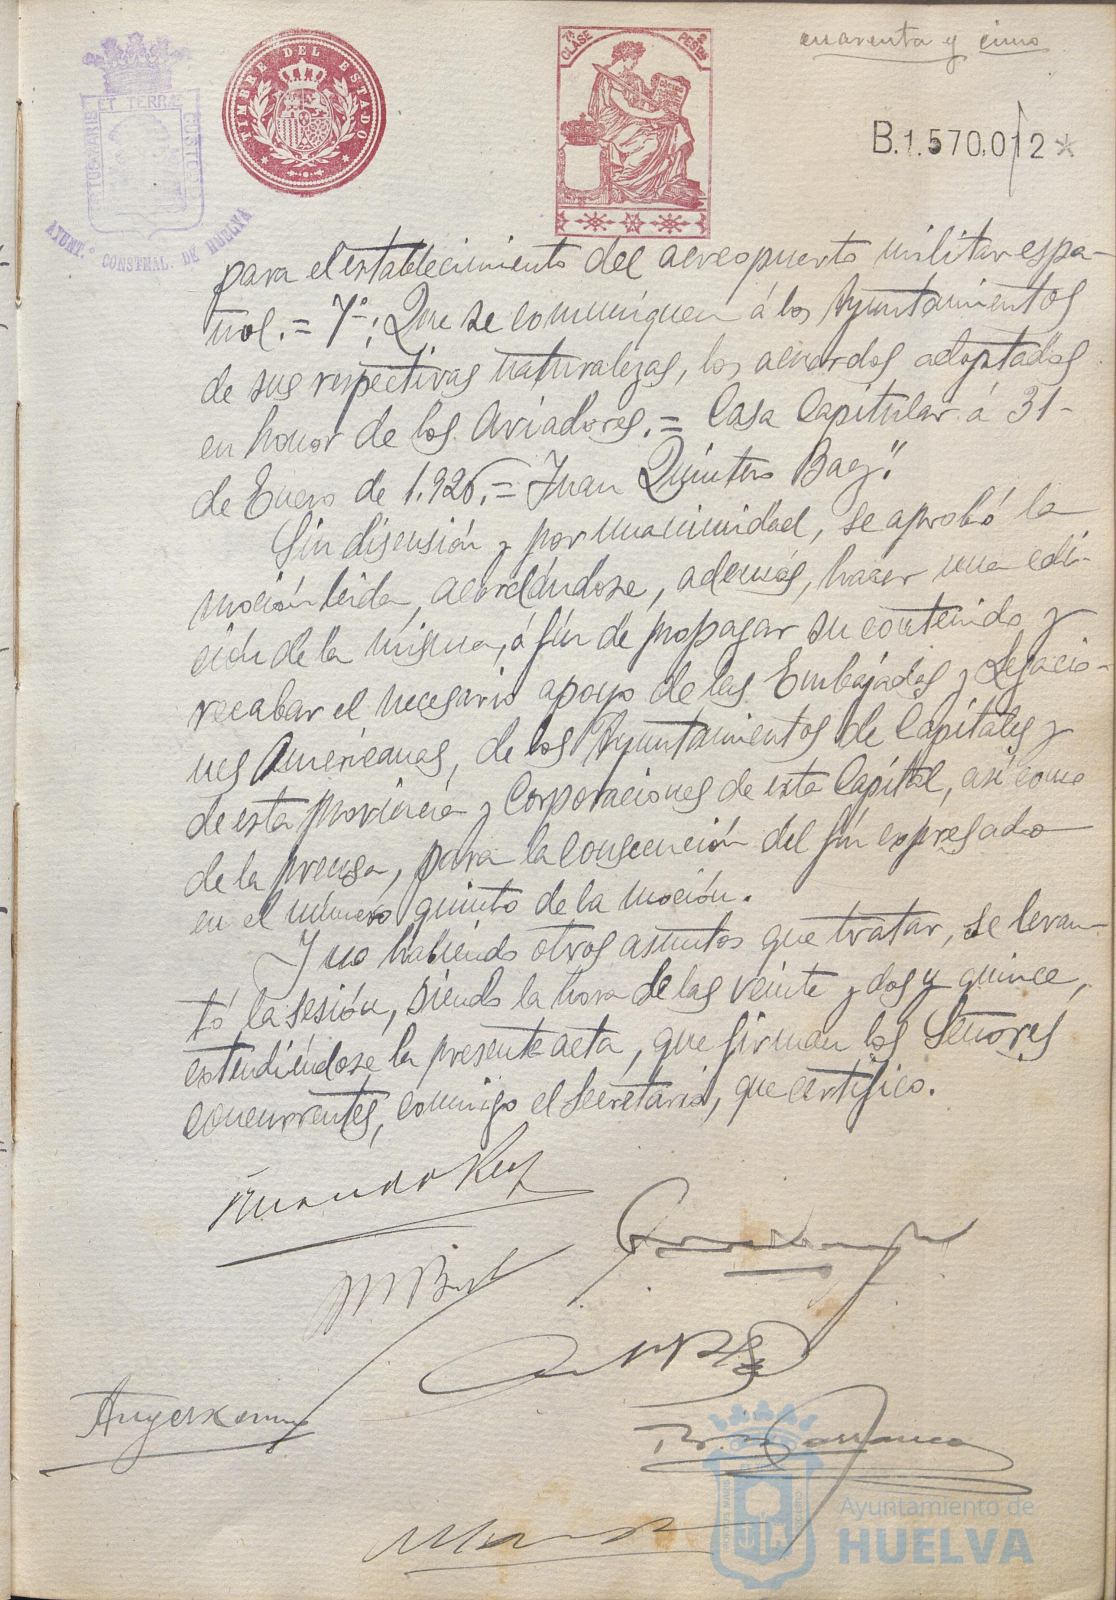 cuarenta y cinco
7ª CLASE
PESETAS
TIMBRE DEL ESTADO
PORTUS MARIS ET TERRAE CUSTODIA
AYUNT.º CONSTNAL. DE HUELVA
B.1.570.012*
para el establecimiento del aereopuerto militar espa-
ñol. = 7º: Que se comuniquen á los Ayuntamientos
de sus respectivas naturalezas, los acuerdos adoptados
en honor de los Aviadores. = Casa Capitular á 31-
de Enero de 1.926. = Juan Quintero Baez".
Sin discusión y por unanimidad, se aprobó la
moción leida, acordándose, además, hacer una edi-
ción de la misma, á fin de propagar su contenido y
recabar el necesario apoyo de las Embajadas y Legacio-
nes Américanas, de los Ayuntamientos de Capitales y
de esta provincia y Corporaciones de esta Capital, así como
de la prensa, para la consecución del fin expresado
en el número quinto de la moción.
Y no habiendo otros asuntos que tratar, se levan-
tó la sesión, siendo la hora de las veinte y dos y quince,
estendiéndose la presente acta, que firman los Señores
concurrentes, conmigo el Secretario, que certifico.
Ayuntamiento de
HUELVA